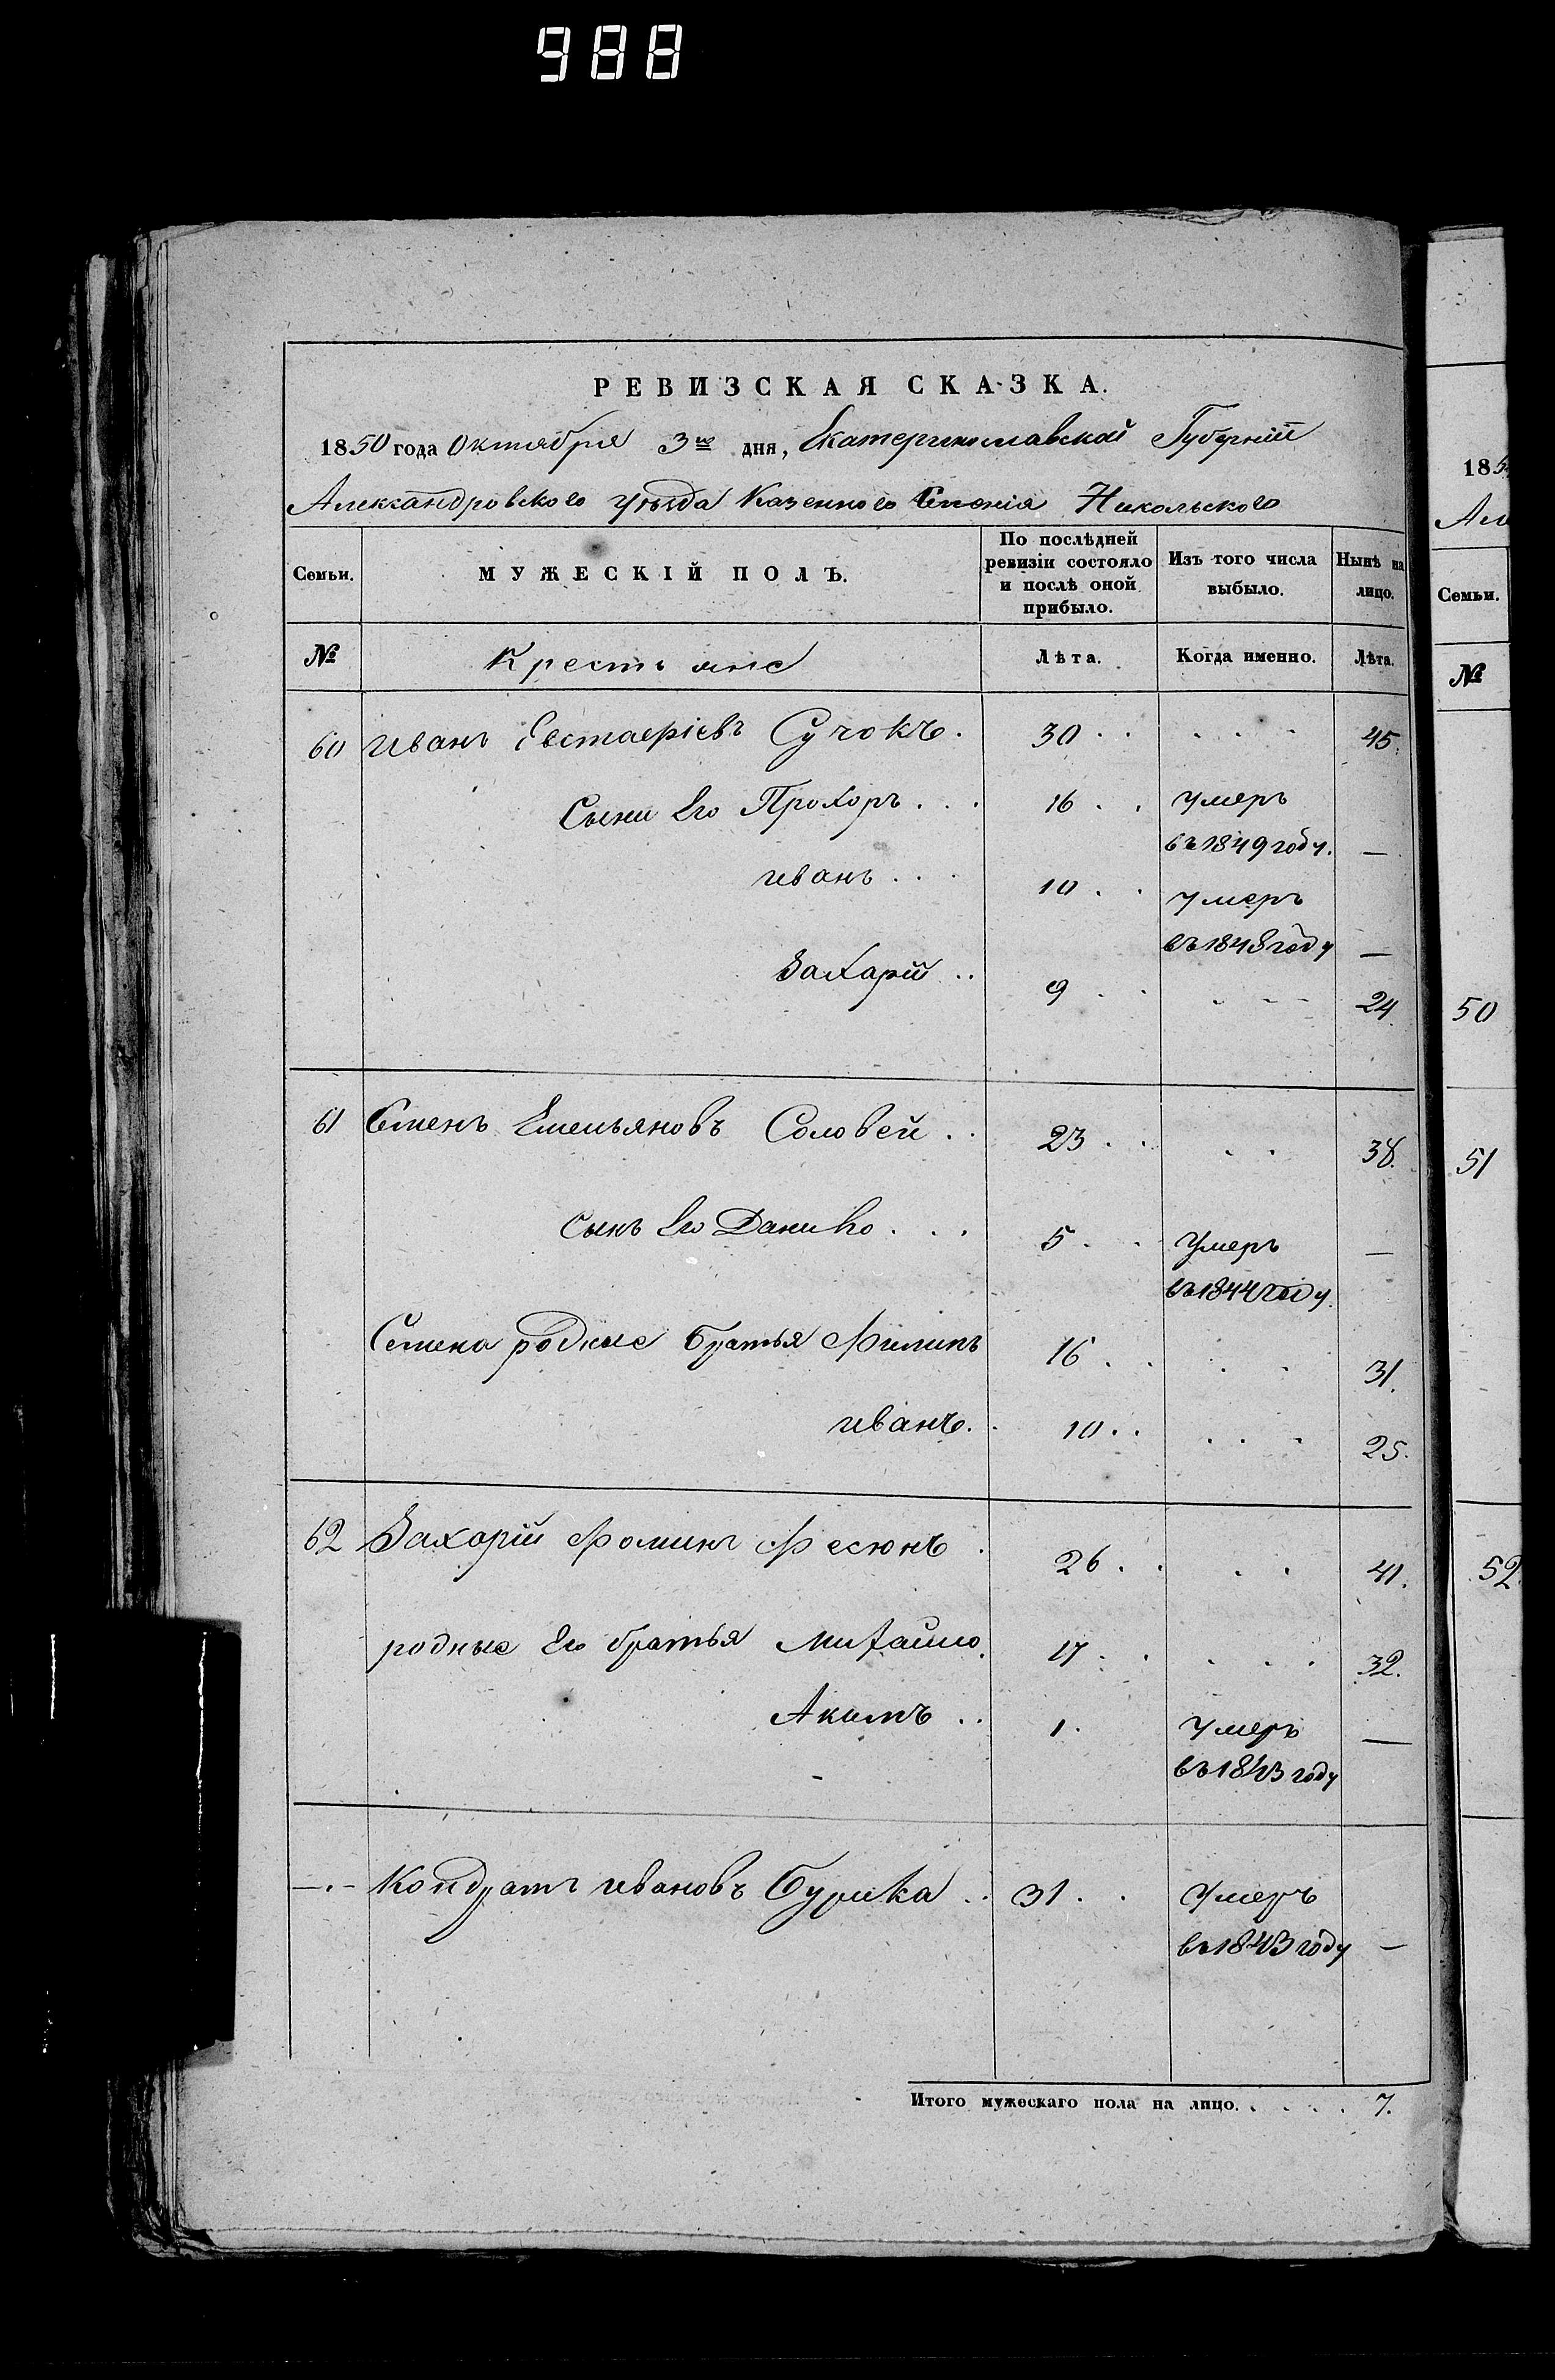 988
РЕВИЗСКАЯ СКАЗКА.
1850 года Октября 3го дня, Екатеринославской Губерніи
Александровского уѣзда Казенного Селенія Никольского
Семьи. МУЖЕСКІЙ ПОЛЪ. По послѣдней ревизіи состояло и послѣ оной прибыло. Изъ того числа выбыло. Нынѣ на лицо.
№ Крестьяне Лѣта. Когда именно. Лѣта.
60 Иванъ Евстафіевъ Сучокъ. 30 45.
Сыны Его Прохоръ 16 умеръ
въ 1849 году. —
иванъ 10 умеръ
въ 1848 году —
Захарій 9 24
61 Семенъ Емельяновъ Соловей 23 38.
Сынъ Его Данило 5 умеръ —
въ 1844 году.
Семена родные братья Филипъ 16 31.
иванъ. 10 25.
62 Захарій Фоминъ Фесюнъ 26 41.
родные Его братья Михайло 17 32.
Акимъ 1. умеръ —
въ 1843 году
—.— Кондратъ ивановъ Бурика 31 Умеръ
въ 1843 году —
Итого мужескаго пола на лицо. 7.
185
Ал
Семьи.
№
50
51
52